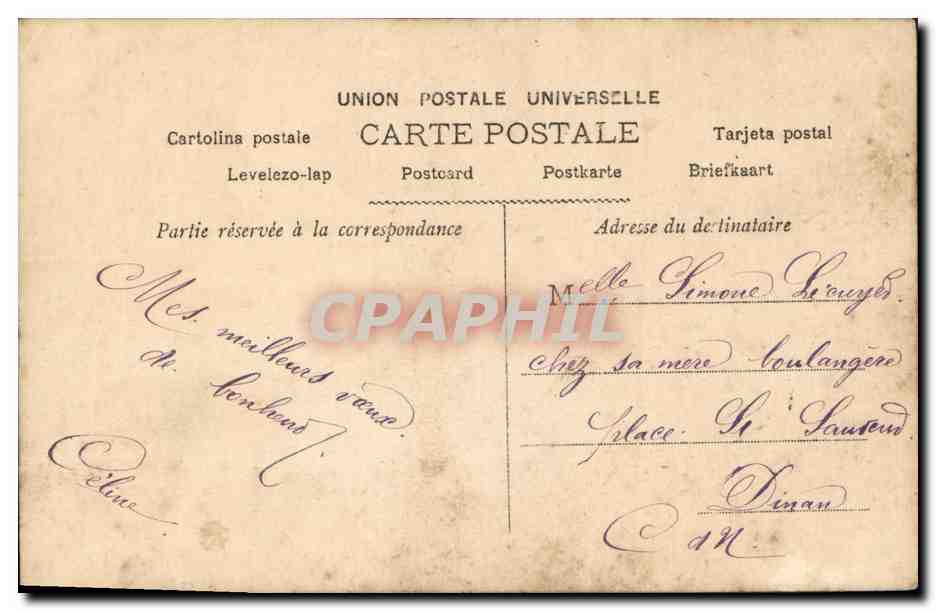 UNION POSTALE UNIVERSELLE
CARTE POSTALE
Cartolina postale
Tarjeta postal
Levelezo-lap
Postcard
Postkarte
Briefkaart
Partie réservée à la correspondance
Mes meilleurs vœux
de bonheur
Céline
Adresse du destinataire
Melle Simone Lécuyer
chez sa mère boulangère
place St Sauveur
Dinan
C du N.
CPAPHIL